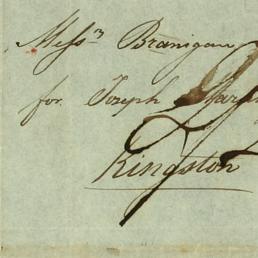 Mess^rs Branigan
for Joseph
Kingston